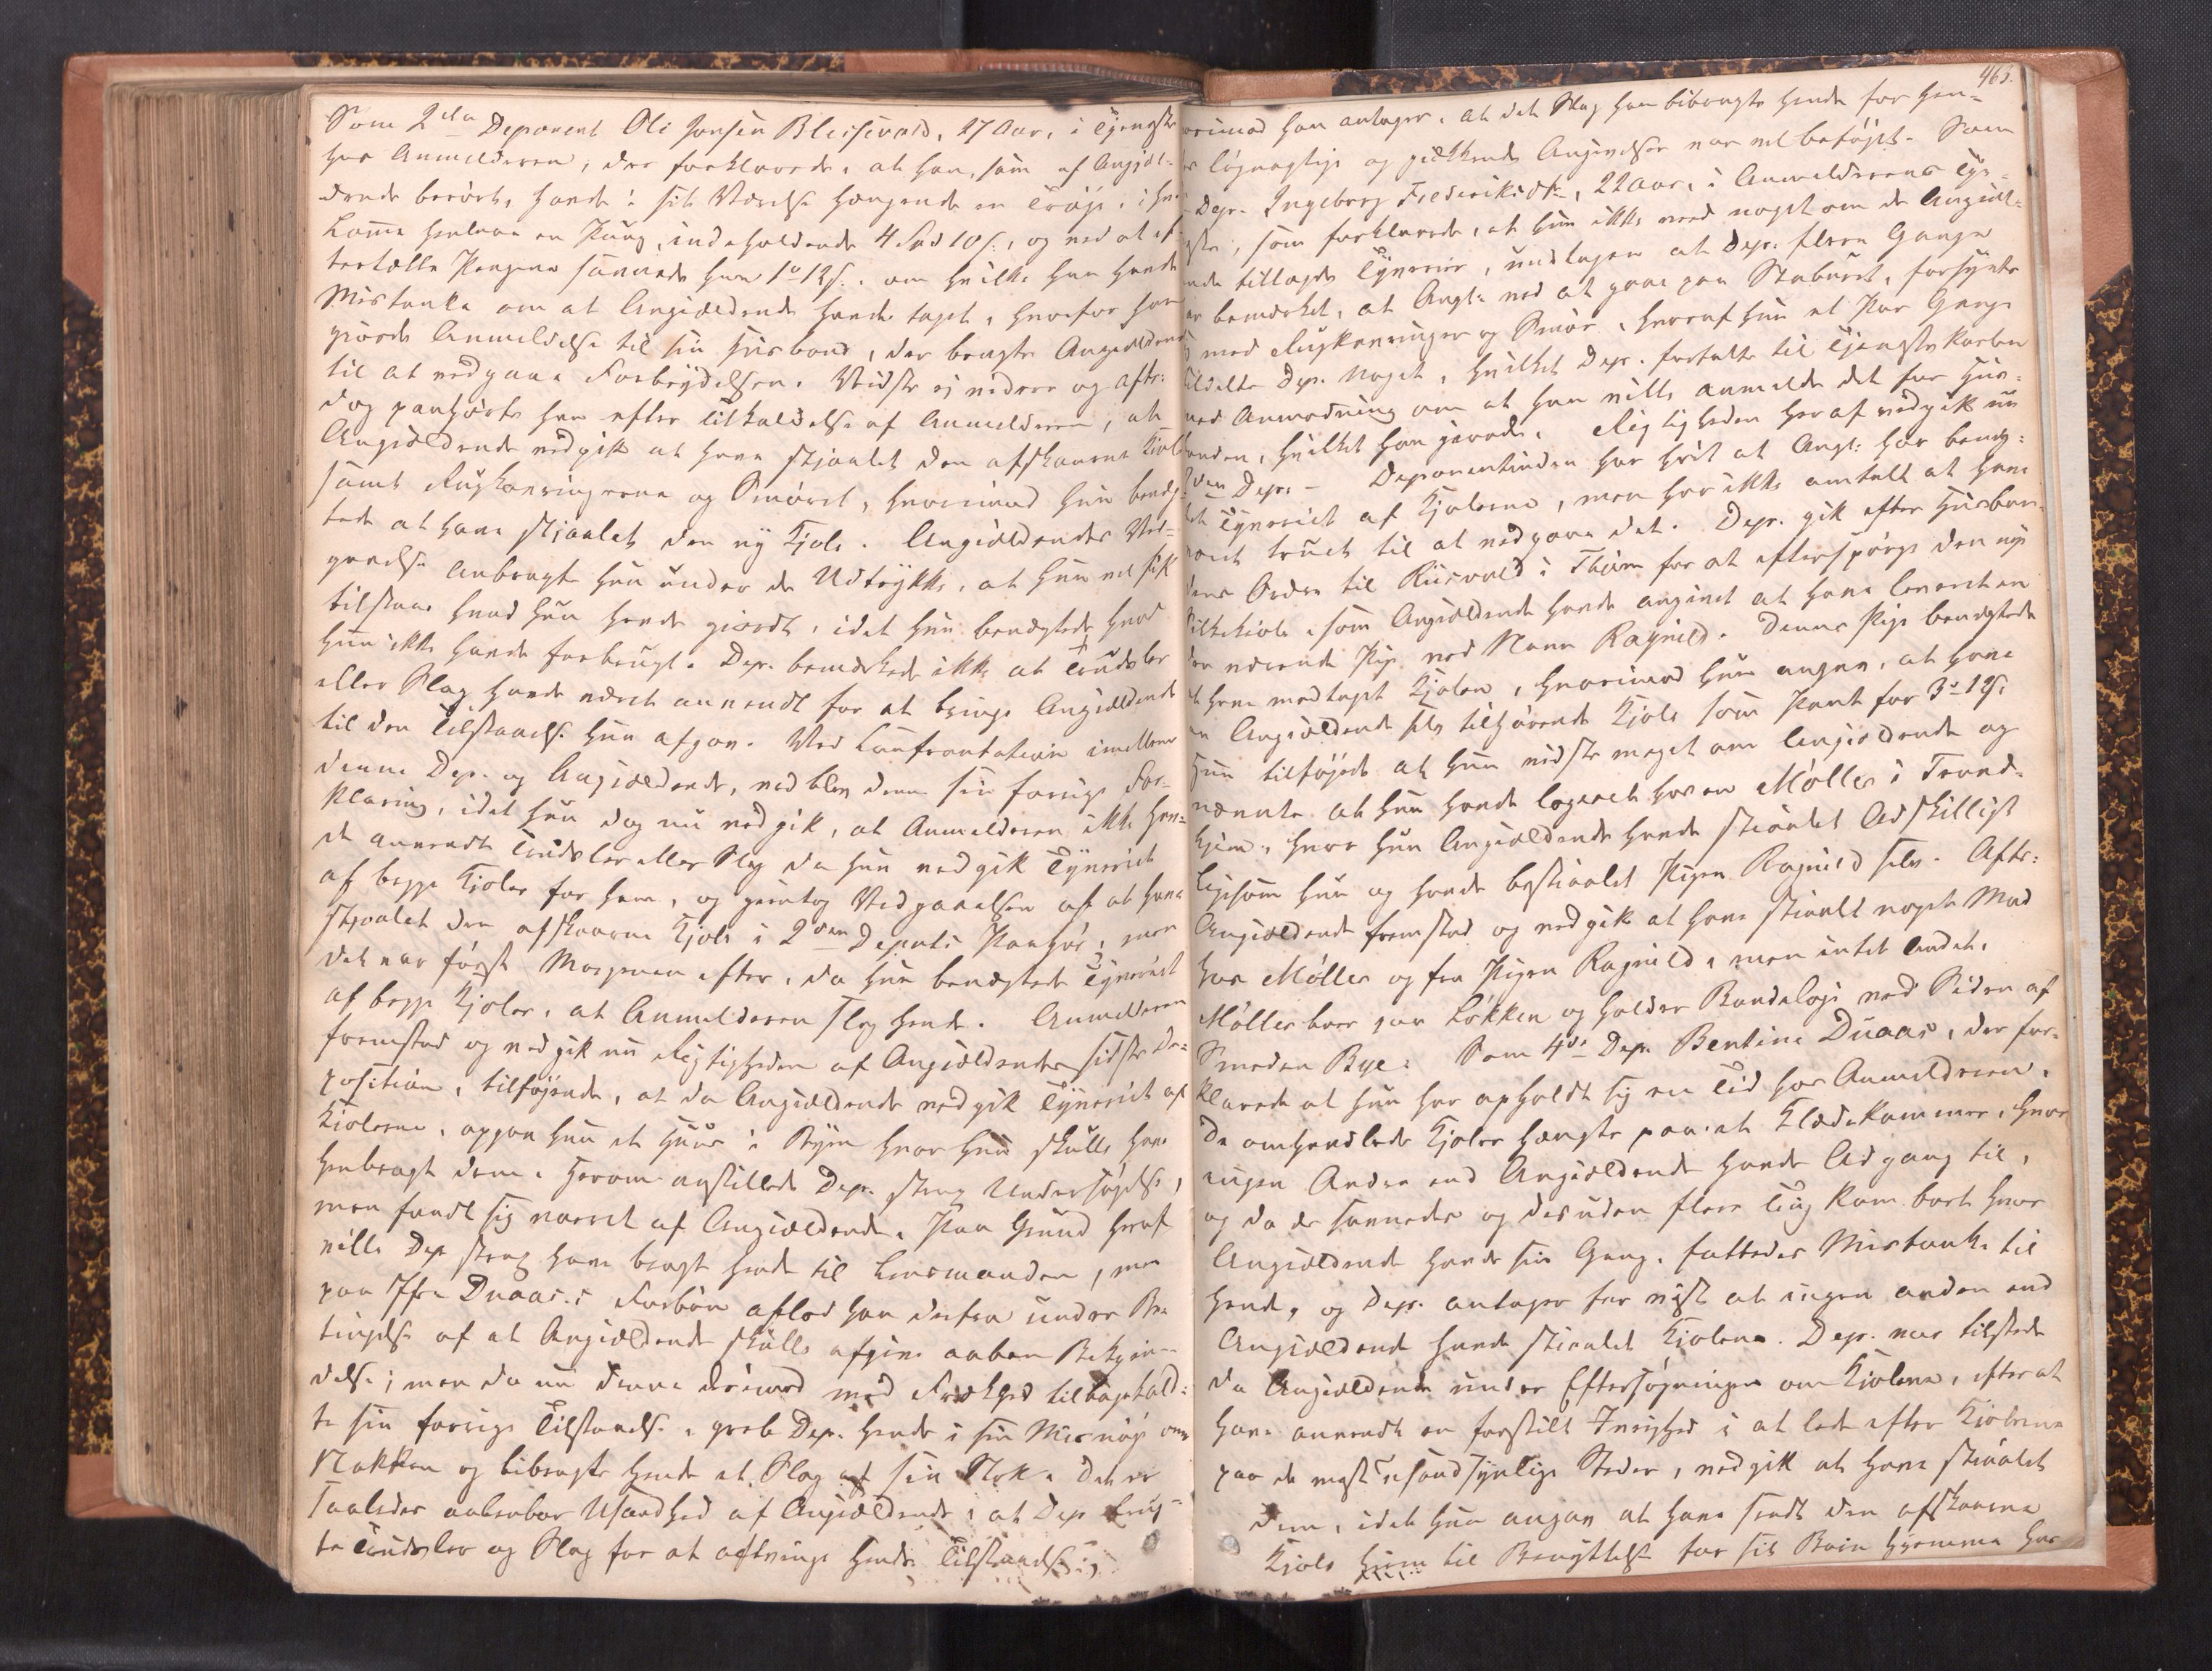 Som 2den Deponent Ole Jonsen Bleisevold, 27 Aar, i Tjeneste
hos Anmelderen, der forklarede, at han, som af Angjæl-
dende berørt, havde i sit Værelse hængende en Trøje, i hvis
Lomme henlaae en Pung, indeholdende 4 Spd 10 s., og ved at ef-
tertælle Pengene savnede han 1 o 12 s., om hvilke han havde
Mistanke om at Angjældende havde taget, hvorfor han
gjorde Anmeldelse til sin Husbond, der bragte Angjældende
til at vedgaae Forbrydelsen. Vidste ej videre og aftr:
dog paahørte han efter Tilkaldelse af Anmelderen, at
Angjældende vedgik at have stjaalet den afskaarne Kjole
samt Rugkavringerne og Smøret, hvorimod hun benæg-
tede at have stjaalet den ny Kjole. Angjældendes Ved-
gaaelse anbragte hun under de Udtrykke, at hun vel fik
tilstaae hvad hun havde gjordt, idet hun benægtede hvad
hun ikke havde forbrugt. Dep. bemærkede ikke at Trudsler
eller Slag havde været anvendt for at bringe Angjældende
til den Tilstaaelse hun afgav. Ved Confrontation imellem
denne Dep. og Angjældende, ved blev denne sin forrige For-
klaring, idet hun dog nu vedgik, at Anmelderen ikke hav-
de anvendt Trudsler eller Slag da hun vedgik Tyveriet
af begge Kjoler for ham, og gjentog Vedgaaelsen af at have
stjaalet den afskaarne Kjole i 2den Depnts Paahør, men
det var først Morgenen efter, da hun benægtede Tyveriet
af begge Kjoler, at Anmelderen slog hende. Anmelderen
fremstod og vedgik nu Rigtigheden af Angjældendes sidste De-
position, tilføjende, at da Angjældende vedgik Tyveriet af
Kjolerne, opgav hun et Huus i Byen hvor hun skulle have
henbragt dem. Herom anstillede Dep. strax Undersøgelse,
men fandt sig narret af Angjældende. Paa Grund heraf
vilde Dep strax have bragt hende til Lensmanden, men
paa Jfr. Duaas.s Forbøn aflod han derfra under Be-
tingelse af at Angjældende skulle afgive aaben Bekjen-
delse; men da nu denne derimod med Frækhed tilbagekald-
te sin forrige Tilstaaelse, greb Dep. hende i sin Misnøje om
Nakken og bibragte hende et Slag af sin Stok. Det er
saaledes aabenbar Usandhed af Angjældende, at Dep brug-
te Trudsler og Slag for at aftvinge hende Tilstaaelse,

465.
hvorimod han antager, at det Slag han bibragte hende for hen-
des løgnagtige og Angivelser var vel beføjet. Som
Dep. Ingeborg Frederiksdtr, 22 Aar, i Anmelderens Tje-
neste, som forklarede, at hun ikke veed noget om de Angjæl-
dende tillagte Tyverier, undtagen at Dep. flere Gange
har bemærket, at Angl. ved at gaae paa Stabured, forsynte
sig med Rugkavringer og Smør, hvoraf hun et Par Gange
tildelte Dep. Noget, hvilket Dep. fortalte til Tjenestekarlen
med Anmodning om at han vilde anmelde det for Hus-
bonden, hvilket han gjorde. Rigtigheden heraf vedgik nu
2den Dep. – Deponentinden har hørt at Angl: har benæg-
tet Tyveriet af Kjolerne, men har ikke omtalt at have
været truet til at vedgaae det. Dep. gik efter Husbon-
dens Ordre til Riisvold i Thjem for at efterspørge den nye
Silkekiole, som Angjældende havde angivet at have leveret en
der værende Pige ved Navn Ragnild. Denne Pige benægtede
at have modtaget Kjolen, hvorimod hun angav, at have
en Angjældende selv tilhørende Kjole som Pant for 3 o 12 s.
Hun tilføjede at hun vidste meget om Angjældende og
nævnte at hun havde logeret hos en Møller i Trond-
hjem, hvor hun Angjældende havde stjaalet Adskilligt
ligesom hun og havde bestjaalet Pigen Ragnild selv. Aftr:
Angjældende fremstod og vedgik at have stjaalt noget Mad
hos Møller og fra Pigen Ragnild, men intet Andet.
Møller boer paa Løkken og holder Bondeloge ved Siden af
Smeden Bye. Som 4de Dep. Bentine Duaas, der for-
klarede at hun har opholdt sig en Tid hos Anmelderen.
De omhandlede Kjoler hængte paa et Klædekammer, hvor
ingen Anden end Angjældende havde Adgang til,
og da de savnedes og desuden flere Ting kom bort hvor
Angjældende havde sin Gang, fattedes Mistanke til
hende, og Dep. antager for vist at ingen anden end
Angjældende havde stjaalet Kjolerne. Dep. var tilstede
da Angjældende under Eftersøgningen om Kjolerne, efter at
have anvendt en forstilt Iverighed i at lede efter Kjolerne
paa de mest usandsynlige Steder, vedgik at have stjaalet
dem, idet hun angav at have sendt den afskaarne
Kjole hjem til Benyttelse for sit Barn hjemme hos